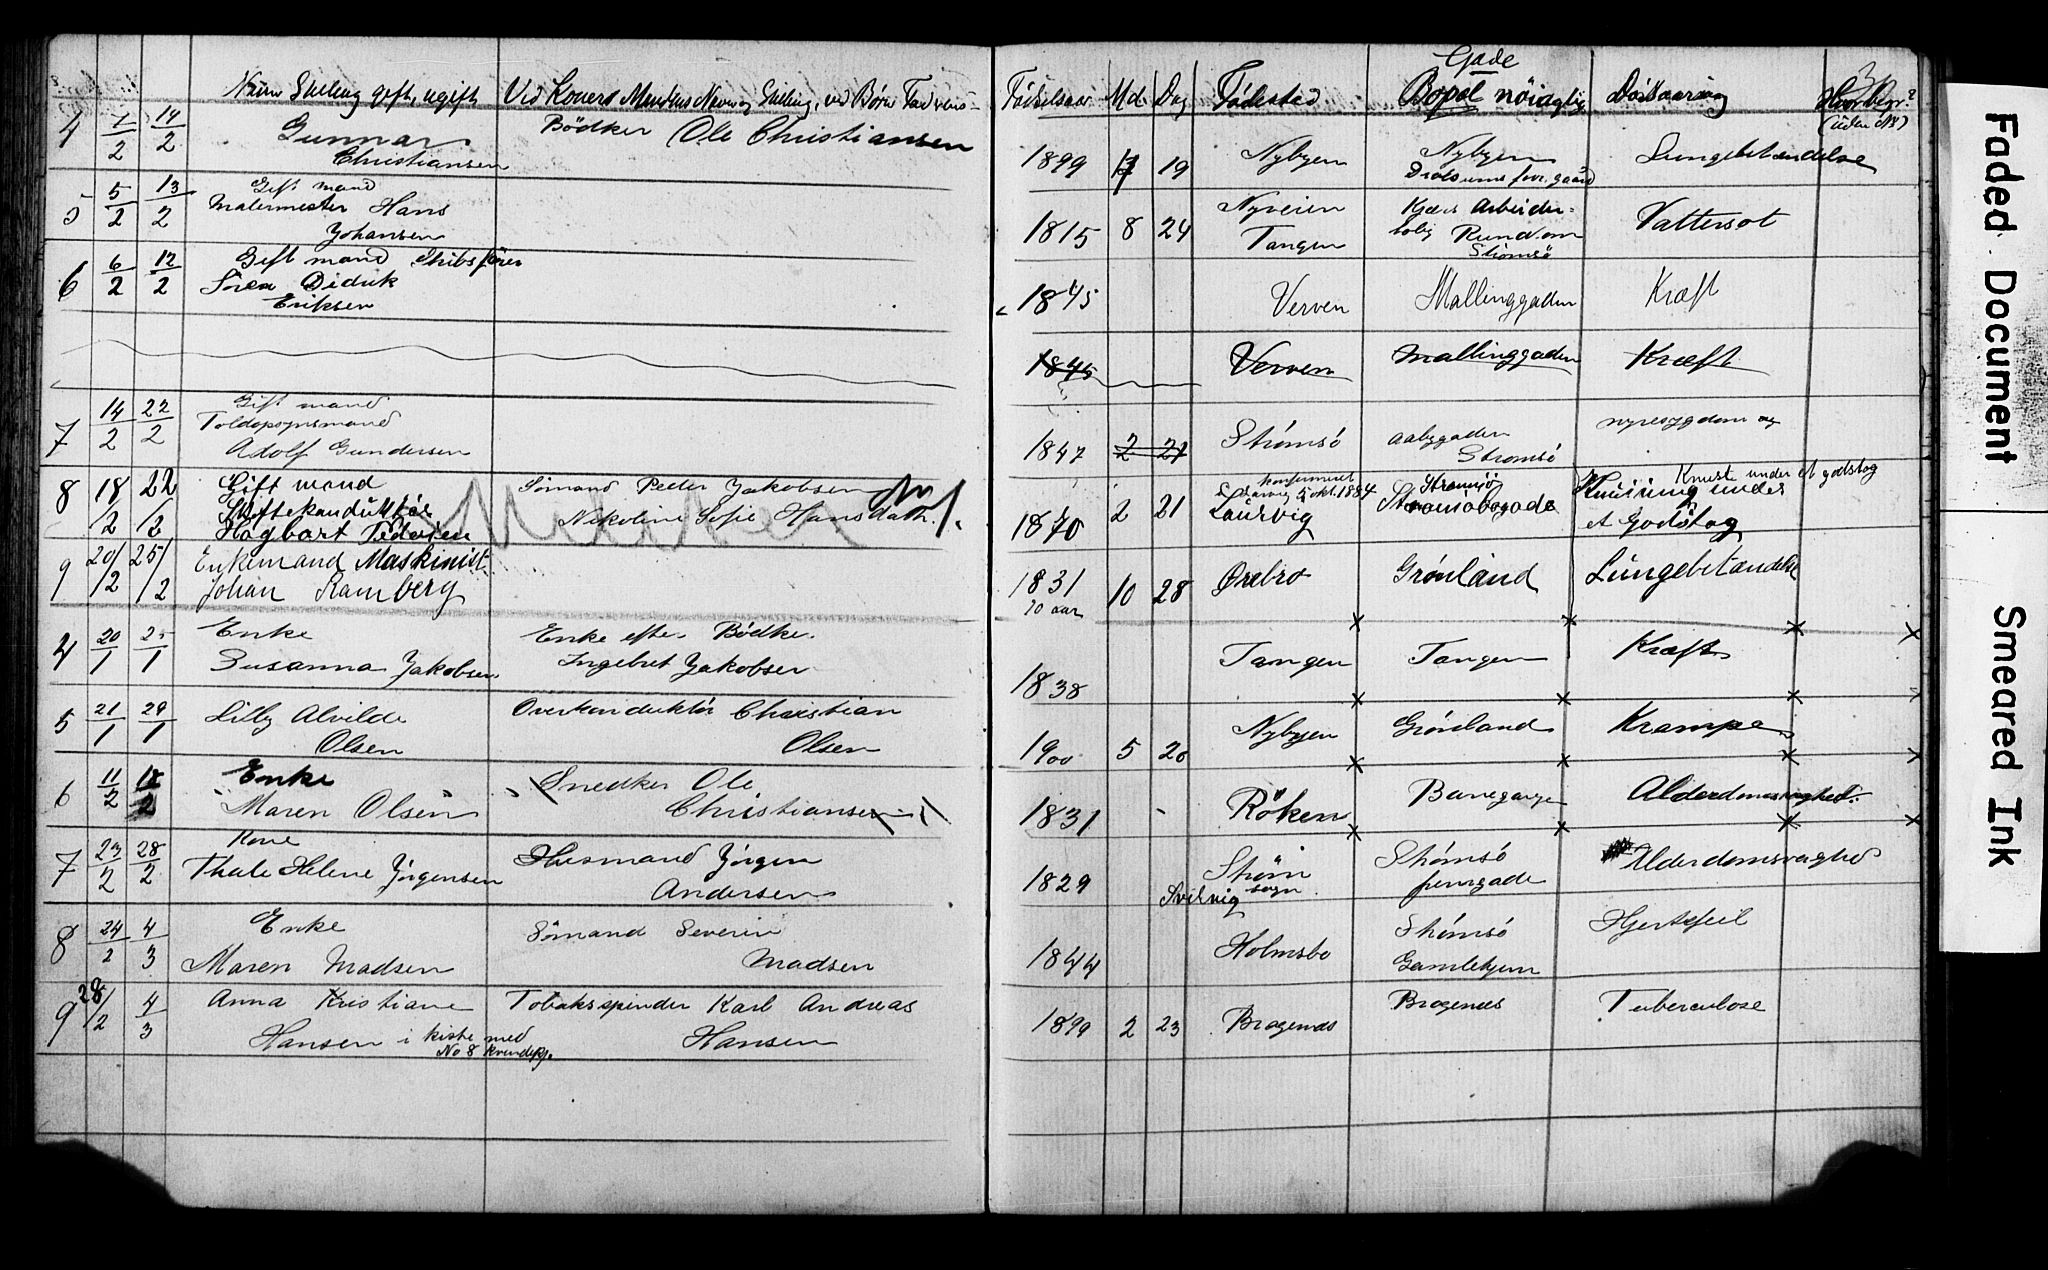 Navn Stilling gift, ugift Ved Koner Mandens Navn og Stilling, ved Børn Faderens
Fødselsaar Md. Dag Fødested Gade
Bopæl nøiagtig Dødsaarsag Hvor begr.?
(uden No)
4 1/2 14/2 Gunnar
Christiansen Bødker Ole Christiansen 1899 19 Nybyen Nybyen
gaard Lungebetændelse
5 5/2 13/2 Gift mand
Malermester Hans
Johansen 1815 8 24 Nyveien
Tangen Kjærs Arbeider-
bolig Rundom
Strømsø Vattersot
6 6/2 12/2 Gift mand Skibsfører
Didrik
Eriksen 1845 Verven Mallinggaden Kræft
1845 Verven Mallinggaden Kræft
7 14/2 22/2 Gift mand
Toldopsynsmand
Adolf Gundersen 1847 2 21 Strømsø Aabygaden
Strømsø nyresygdom og
8 18/2 22/2 Gift mand
Skiftekonduktør
Hagbart Pedersen Sømand Peder Jakobsen
Nikoline Sofie Hansdatter 1870 2 21 konfirmert
Larvig 5 okt. 1884
Laurvig Strømsø
Strømsøbogade Knust under et godstog
Knusning under
et Godstog
9 20/2 25/2 Enkemand Maskinist
Johan Ramberg 1831
70 aar 10 28 Ørebro Grønland Lungebetændelse
4 20/1 25/1 Enke
Susanna Jakobsen Enke efter Bødker
Ingebret Jakobsen 1838 Tangen Tangen Kræft
5 21/1 29/1 Lilly Alvilde
Olsen Overkonduktør Christian
Olsen 1900 5 20 Nybyen Grønland Krampe
6 11/2 18/2 Enke
Maren Olsen Snedker Ole
Christiansen 1831 - Røken Banegangen Alderdomssvaghed
7 23/2 28/2 Kone
Thale Helene Jørgensen Husmand Jørgen
Andersen 1829 Strøm
Svelvig sogn Strømsø
Alderdomsvaghed
8 24/2 4/3 Enke
Maren Madsen Sømand Severin
Madsen 1844 Holmsbo Strømsø
Gamlehjem Hjertefeil
9 28/2 4/3 Anna Kristiane
Hansen i kiste med
No 8 kvindekj. Tobaksspinder Karl Andreas
Hansen 1899 2 23 Bragenæs Bragenæs Tuberculose
Faded Document
Smeared Ink